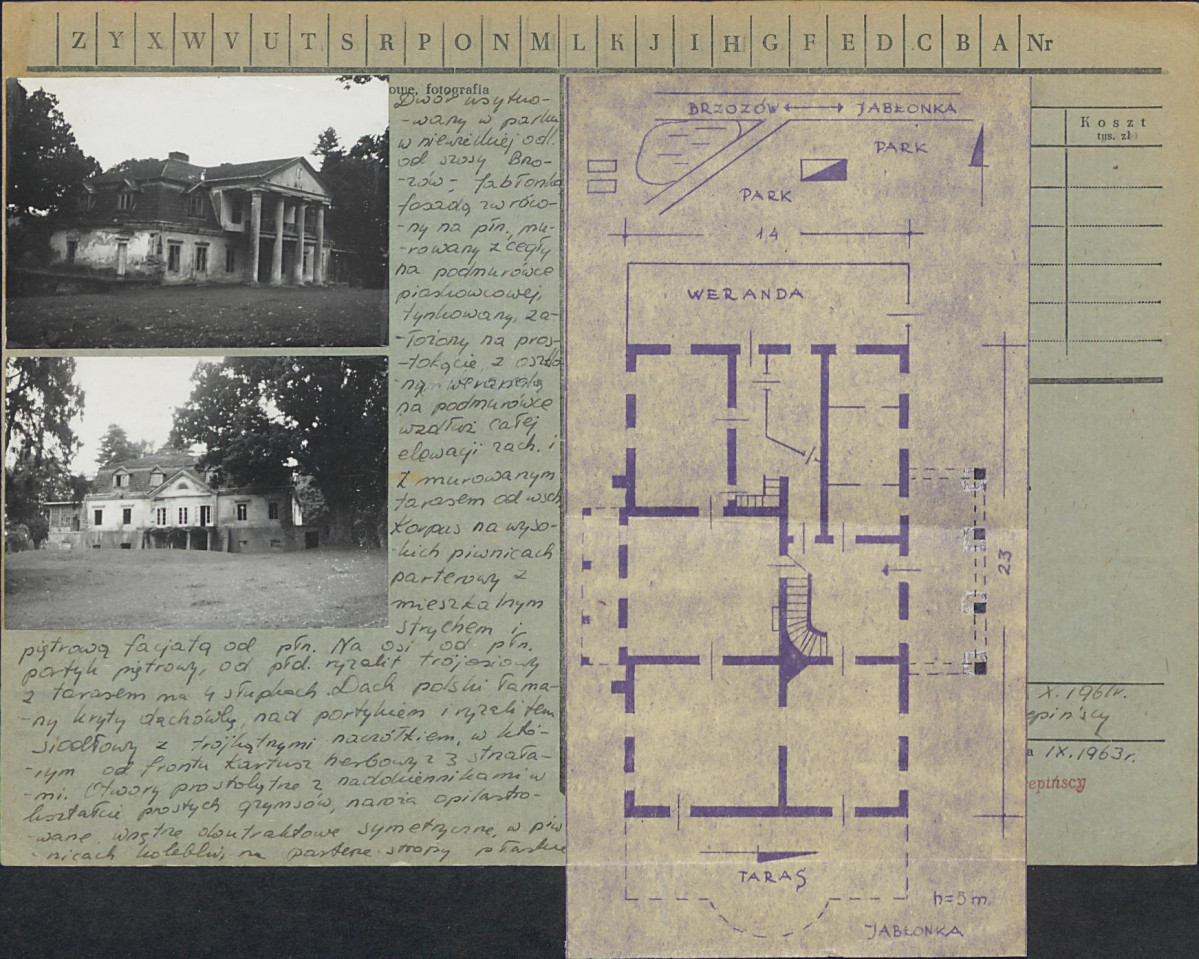 Z Y X W V U T S R P O N M L K J I H G F E D C B A Nr
owe, fotografia
Dwór usytuo-
-wany w parku
w niewielkiej odl.
od szosy Brzo-
-zów - Jabłonka
fasadą zwróco-
-ny na płn. mu-
-rowany z cegły
na podmurówce
piaskowcowej,
tynkowany, za-
-łożony na pros-
-tokącie, z oszklo
ną werandą
na podmurówce
wzdłuż całej
elewacji zach. i
z murowanym
tarasem od wsch.
Korpus na wyso-
-kich piwnicach
parterowy z
mieszkalnym
strychem i
piętrową facjatą od płn. Na osi od płn.
portyk piętrowy, od płd. ryzalit trójosiowy
z tarasem na 4 słupkach. Dach polski łama-
-ny kryty dachówką, nad portykiem i ryzalitem
siodłowy z trójkątnymi naczółkiem, w któ-
-rym od frontu kartusz herbowy z 3 strzała-
-mi. Otwory prostokątne z nadokiennikami w
kształcie prostych gzymsów, naroża opilastro-
-wane, wnętrze dwutraktowe symetryczne, w piw
-nicach kolebki, na parterze stropy płaskie
BRZOZÓW JABŁONKA
PARK
PARK
14
WERANDA
23
TARAS
h=5m
JABŁONKA
Koszt
tys. zł
X. 1961r.
epińscy
a IX.1963r.
epińscy